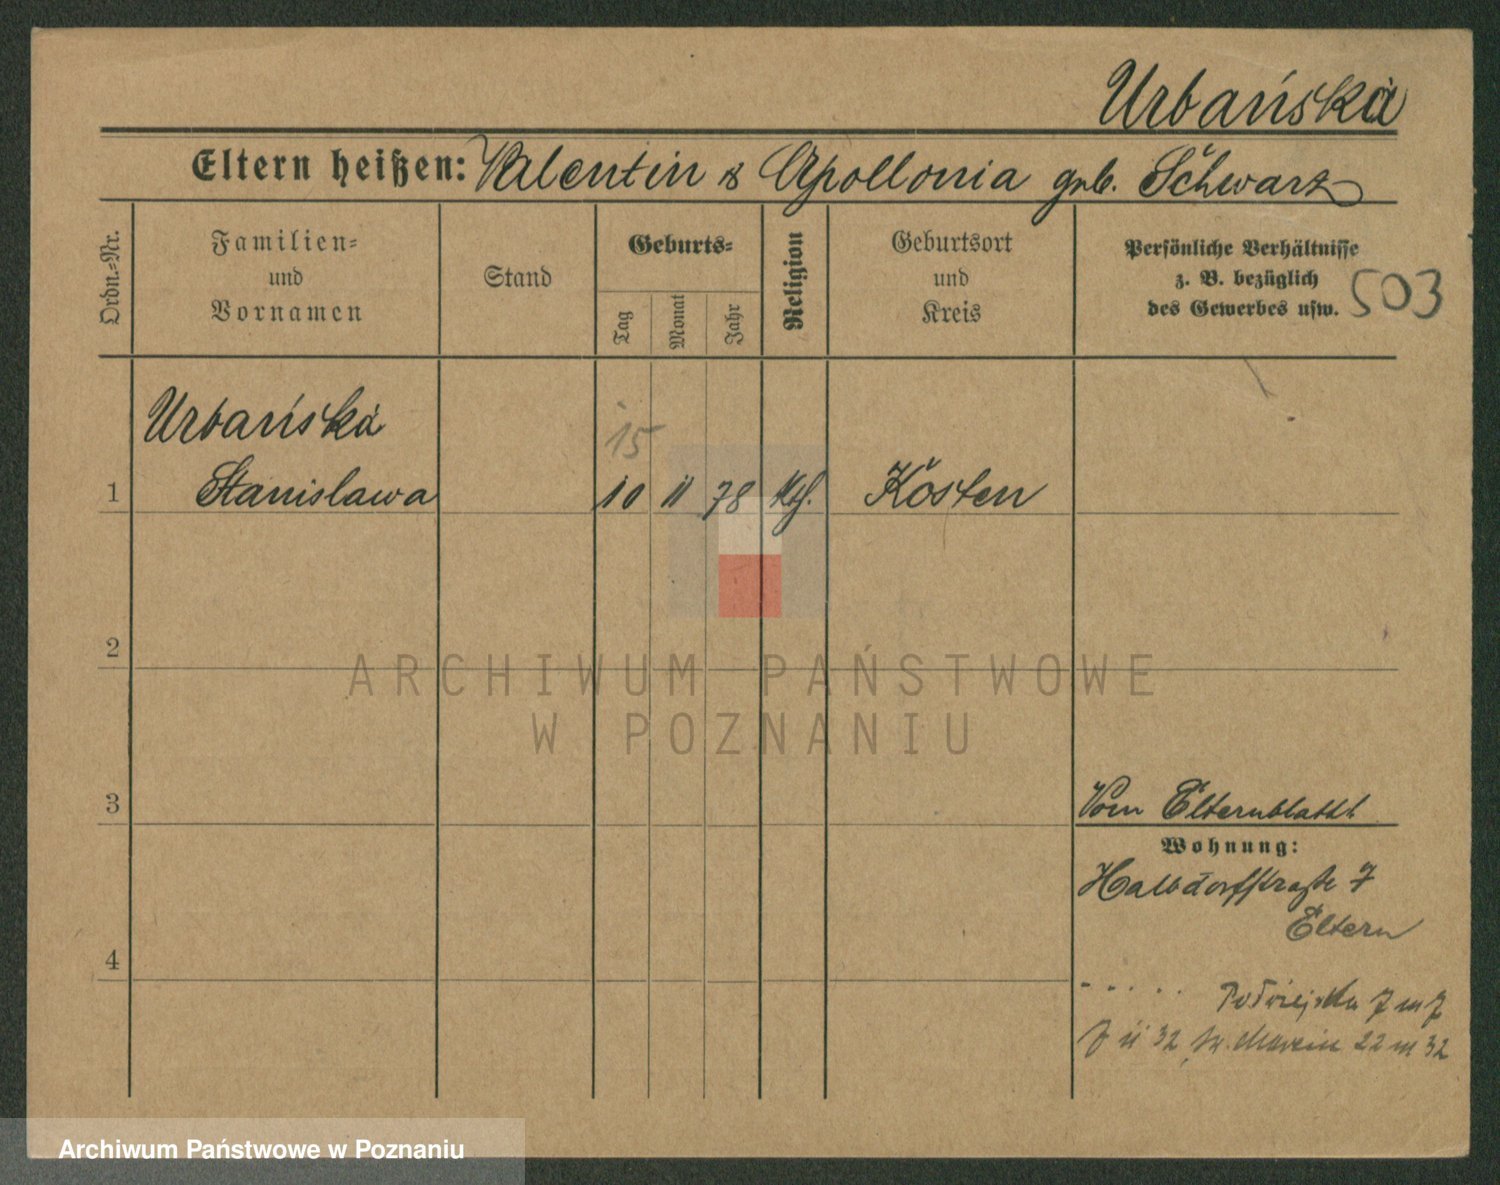 Urbańska
Eltern heißen: Valentin & Apollonia geb. Schwarz
Ordn.=Nr.
Familien=
und
Vornamen
Stand
Geburts=
Tag
Monat
Jahr
Religion
Geburtsort
und
Kreis
Persönliche Verhältnisse
z. B. bezüglich
des Gewerbes usw.
503
Urbańska
15
1 Stanislawa 10 11 78 kth. Kosten
2
3
Vom Elternblatt
Wohnung:
Halbdorfstraße 7
Eltern
4
Półwiejska 7 m 7
7 II 32 św. Marcin 22 m 32
ARCHIWUM PAŃSTWOWE
W POZNANIU
Archiwum Państwowe w Poznaniu